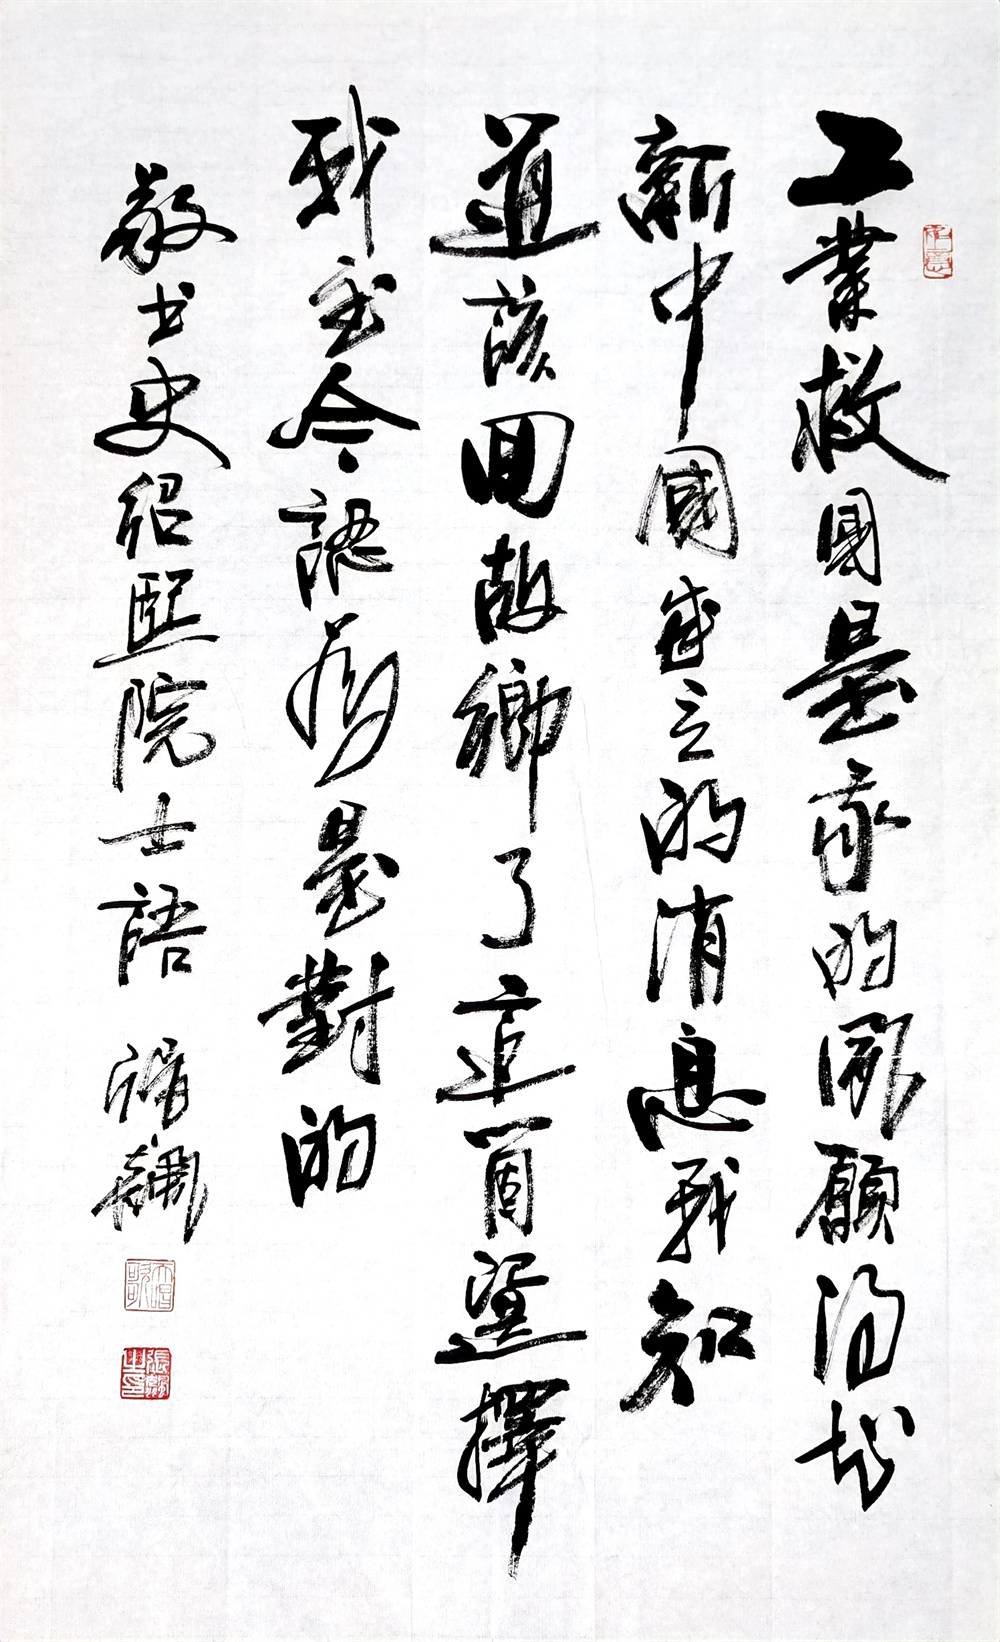 工業救國是我的夙願得到
新中國成立的消息我知
道該回故鄉了這箇選擇
我至今認為是對的
敬书史紹熙院士語